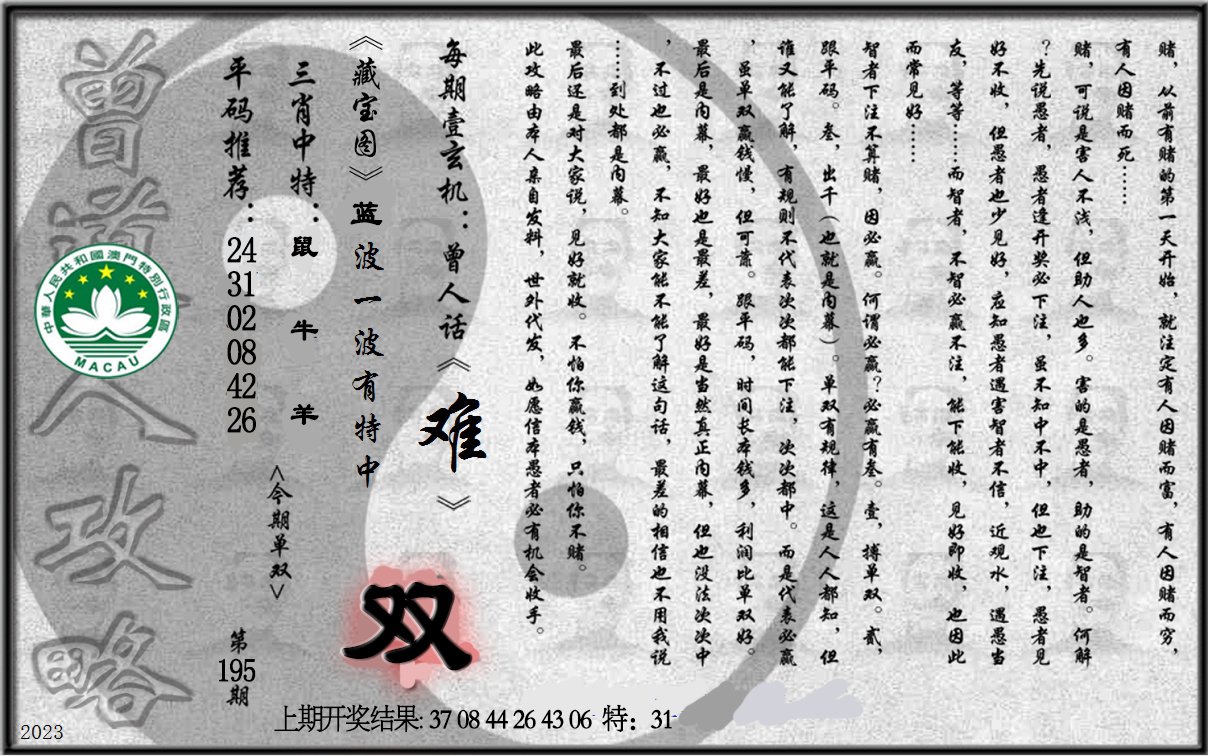 赌，从前有赌的第一天开始，就注定有人因赌而富，有人因赌而穷，
有人因赌而死……
赌，可说是害人不浅，但助人也多。害的是愚者，助的是智者。何解
？先说愚者，愚者逢开奖必下注，虽不知中不中，但也下注，愚者见
好不收，但愚者也少见好，应知愚者遇害智者不信，近观水，遇愚当
友，等等……而智者，不智必赢不注，能下能收，见好即收，也因此
而常见好……
智者下注不算赌，因必赢。何谓必赢？必赢有叁。壹，搏单双。贰，
跟平码。叁，出千（也就是内幕）。单双有规律，这是人人都知，但
谁又能了解，有规则不代表次次都能下注，次次都中。而是代表必赢
，虽单双赢钱慢，但可靠。跟平码，时间长本钱多，利润比单双好。
最后是内幕，最好也是最差，最好是当然真正内幕，但也没法次次中
，不过也必赢，不知大家能不能了解这句话，最差的相信也不用我说
……到处都是内幕。
最后还是对大家说，见好就收。不怕你赢钱，只怕你不赌。
此攻略由本人亲自发料，世外代发，如愿信本愚者必有机会收手。
每期壹玄机：曾人话《难》
《藏宝图》蓝波一波有特中
双
三肖中特：鼠 牛 羊
<今期单双>
平码推荐：24 31 02 08 42 26
第195期
曾道人攻略
中華人民共和國澳門特別行政區
MACAU
上期开奖结果: 37 08 44 26 43 06 特：31
2023